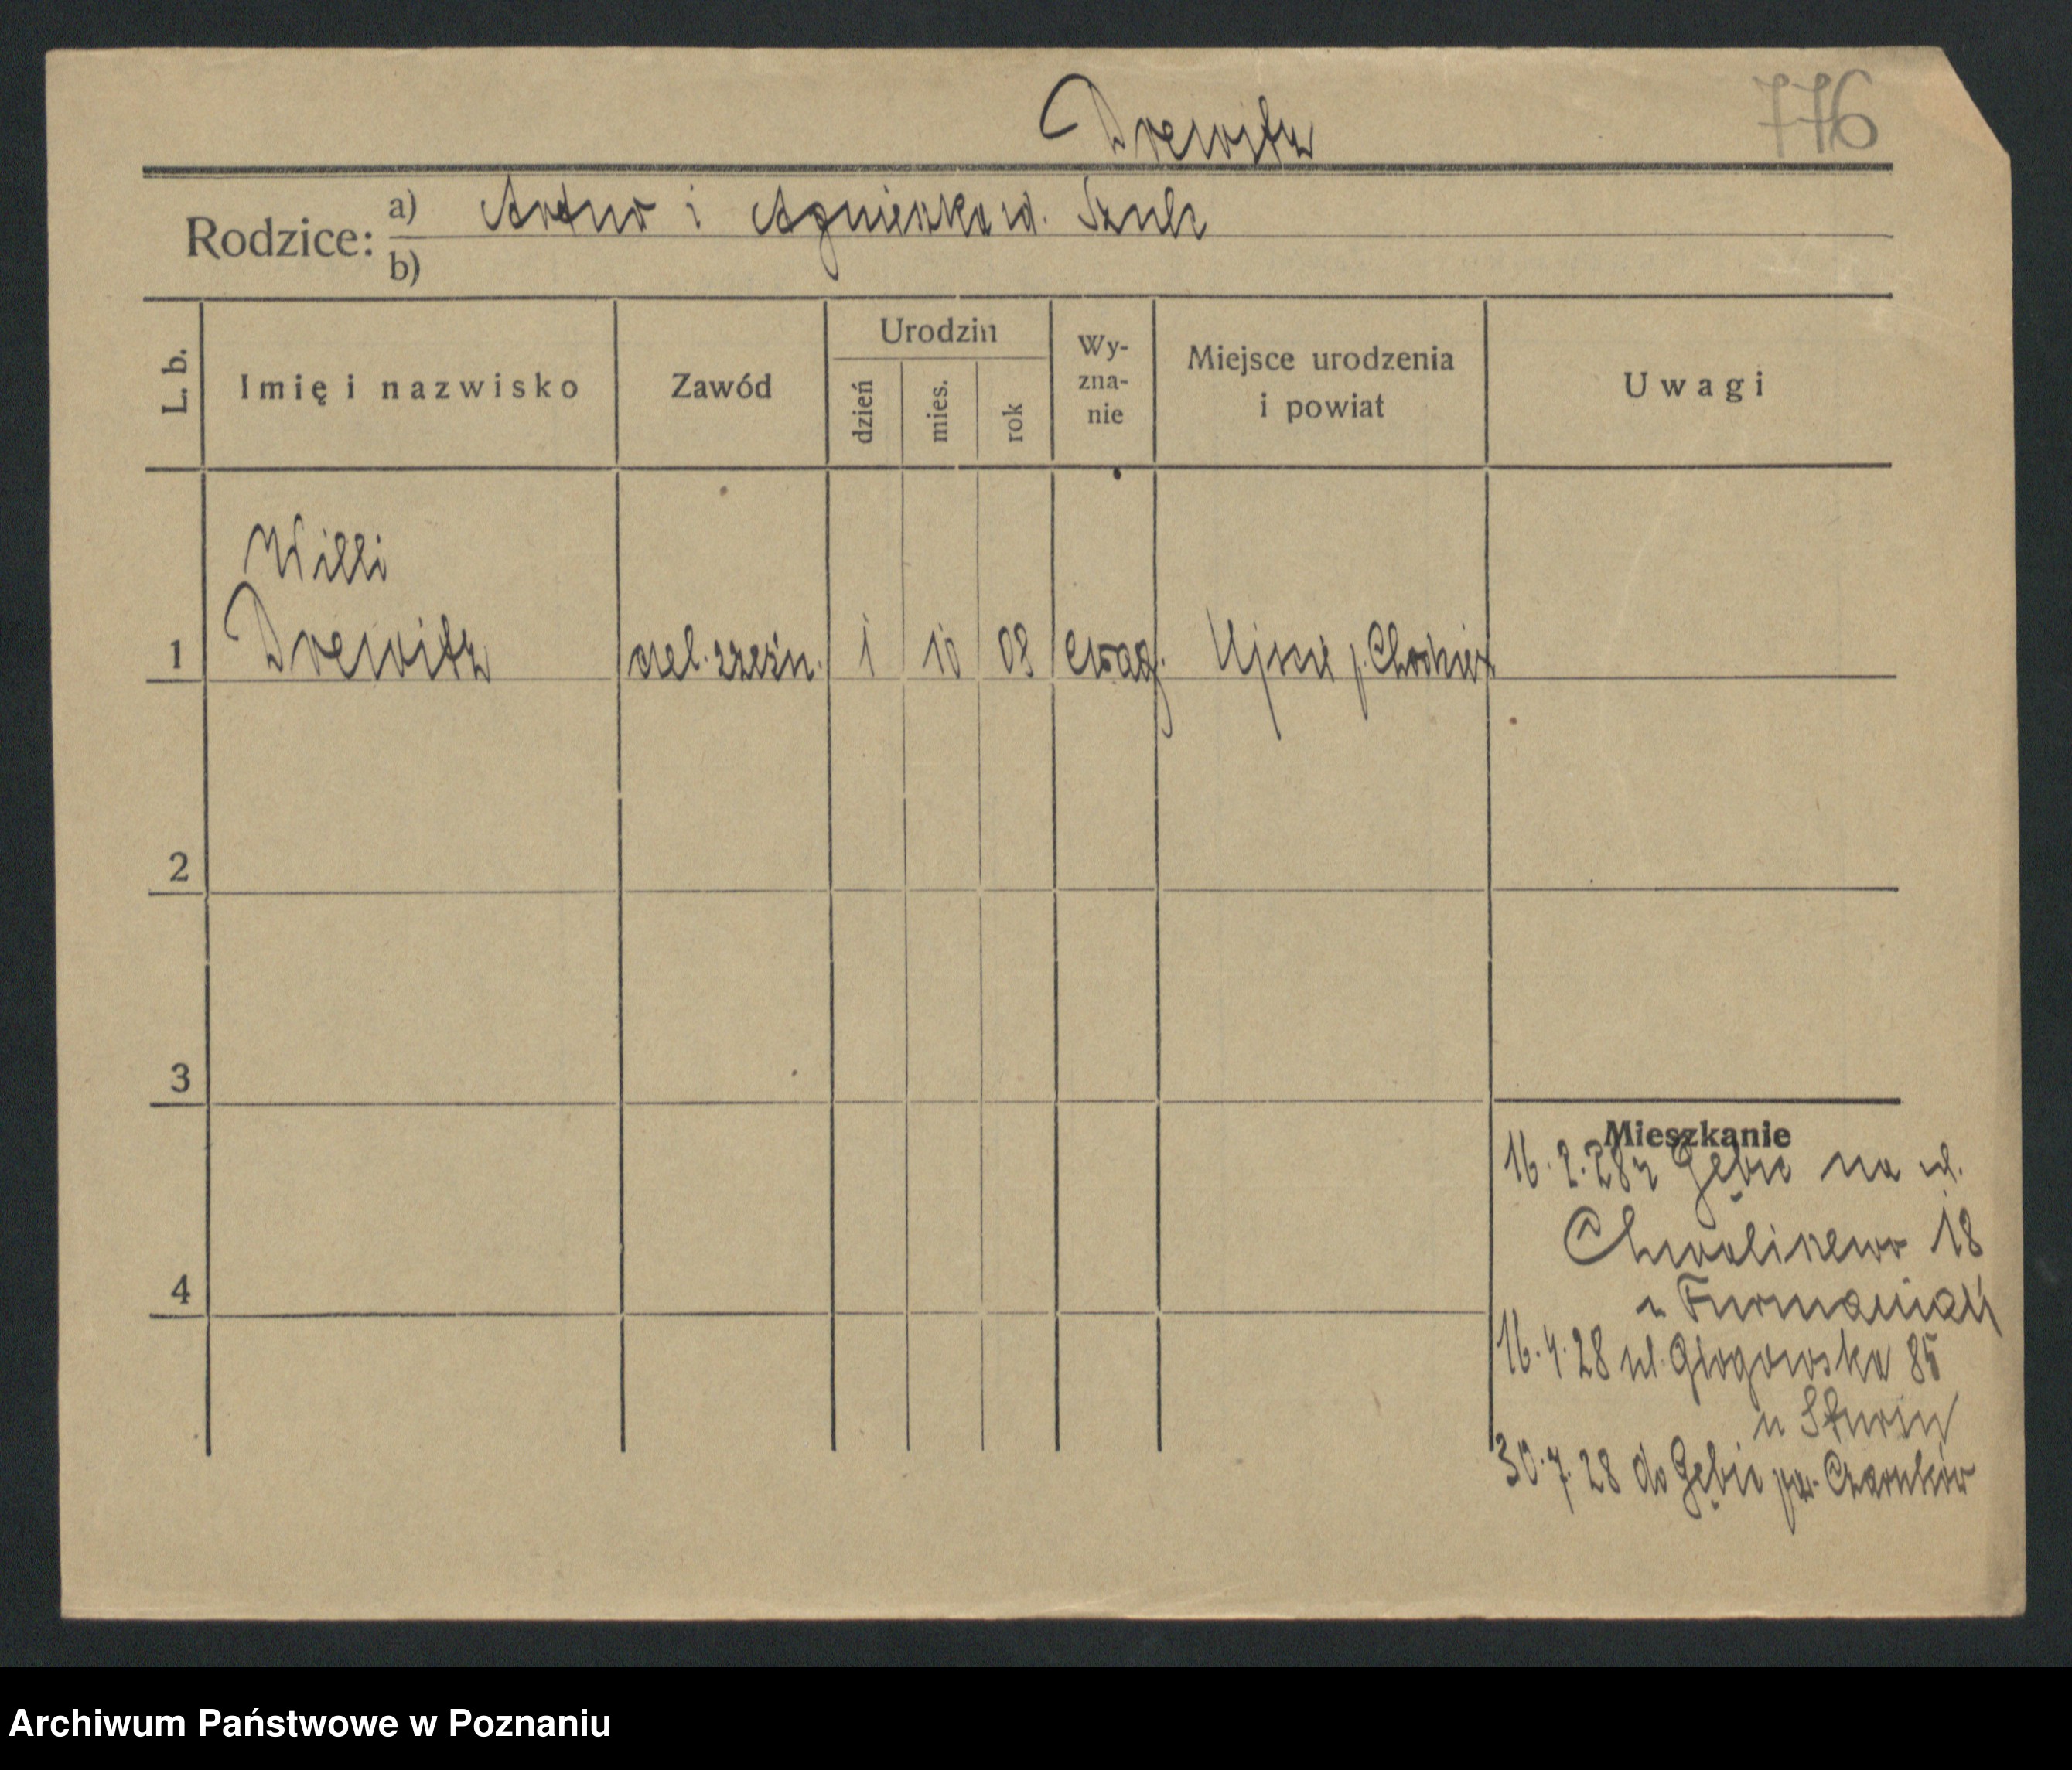 Drewitz
776
Rodzice: a) Artur i Agnieszka ur. Szulc
b)
L. b.
Imię i nazwisko
Zawód
Urodzin
dzień
mies.
rok
Wy-
zna-
nie
Miejsce urodzenia
i powiat
Uwagi
Willi
1 Drewitz czel. rzeźn. 1 10 08 ewag. Ujście p. Chodzież
2
3
Mieszkanie
16. 2. 28 z Gębic na ul.
Chwaliszewo 18
4
u Furmaniak
16. 4. 28 ul. Głogowska 85
u Sturm
30. 7. 28 do Gębic pow. Czarnków
Archiwum Państwowe w Poznaniu